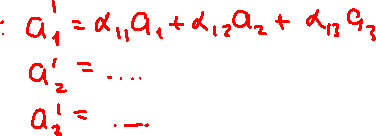 : a₁' = α₁₁a₁ + α₁₂a₂ + α₁₃a₃
a₂' = ....
a₃' = ....